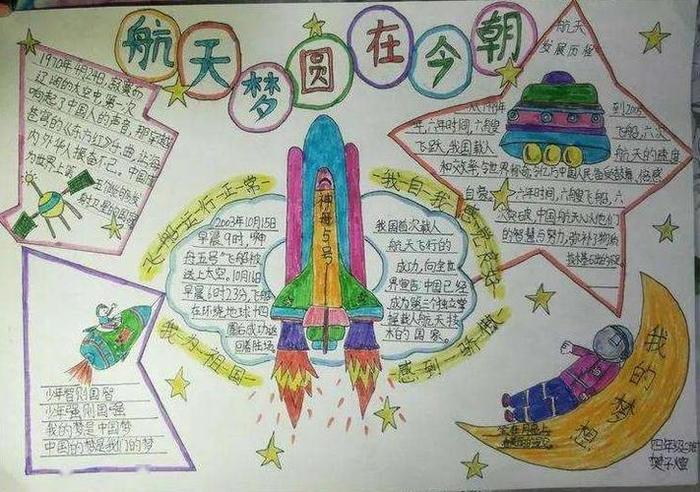 航天梦圆在今朝
1970年4月24日,寂寞而
辽阔的太空中第一次
响起了中国人的声音,那穿越
苍穹的《东方红》乐曲,让海
内外华人振奋不已。中国成
为世界上第
航天
发展历程
从1999年 到2005
年,六年时间,六艘 飞船,六次
飞跃,我国载人 航天的速度
和效率,令世界称奇,令亿万中国人民备受鼓舞,倍感
自豪。六年时间,六艘飞船,六
次突破,中国航天人以他们
的智慧与努力,弥补了物质
飞船运行正常
我自我感觉良好
我为祖国
感到骄傲
2003年10月15日
早晨9时,“神
舟五号”飞船被
送上太空。10月16日
早晨6时23分,飞船
在环绕地球十四
圈后成功返
回着陆场
神舟5号
我国首次载人
航天飞行的
成功,向全世
界宣告:中国已经
成为第三个独立掌
握载人航天技
术的国家。
少年智则国智
少年强则国强
我的梦是中国梦
中国的梦是我们的梦
我的梦想
坐在月亮上
四年级2班
樊子煊